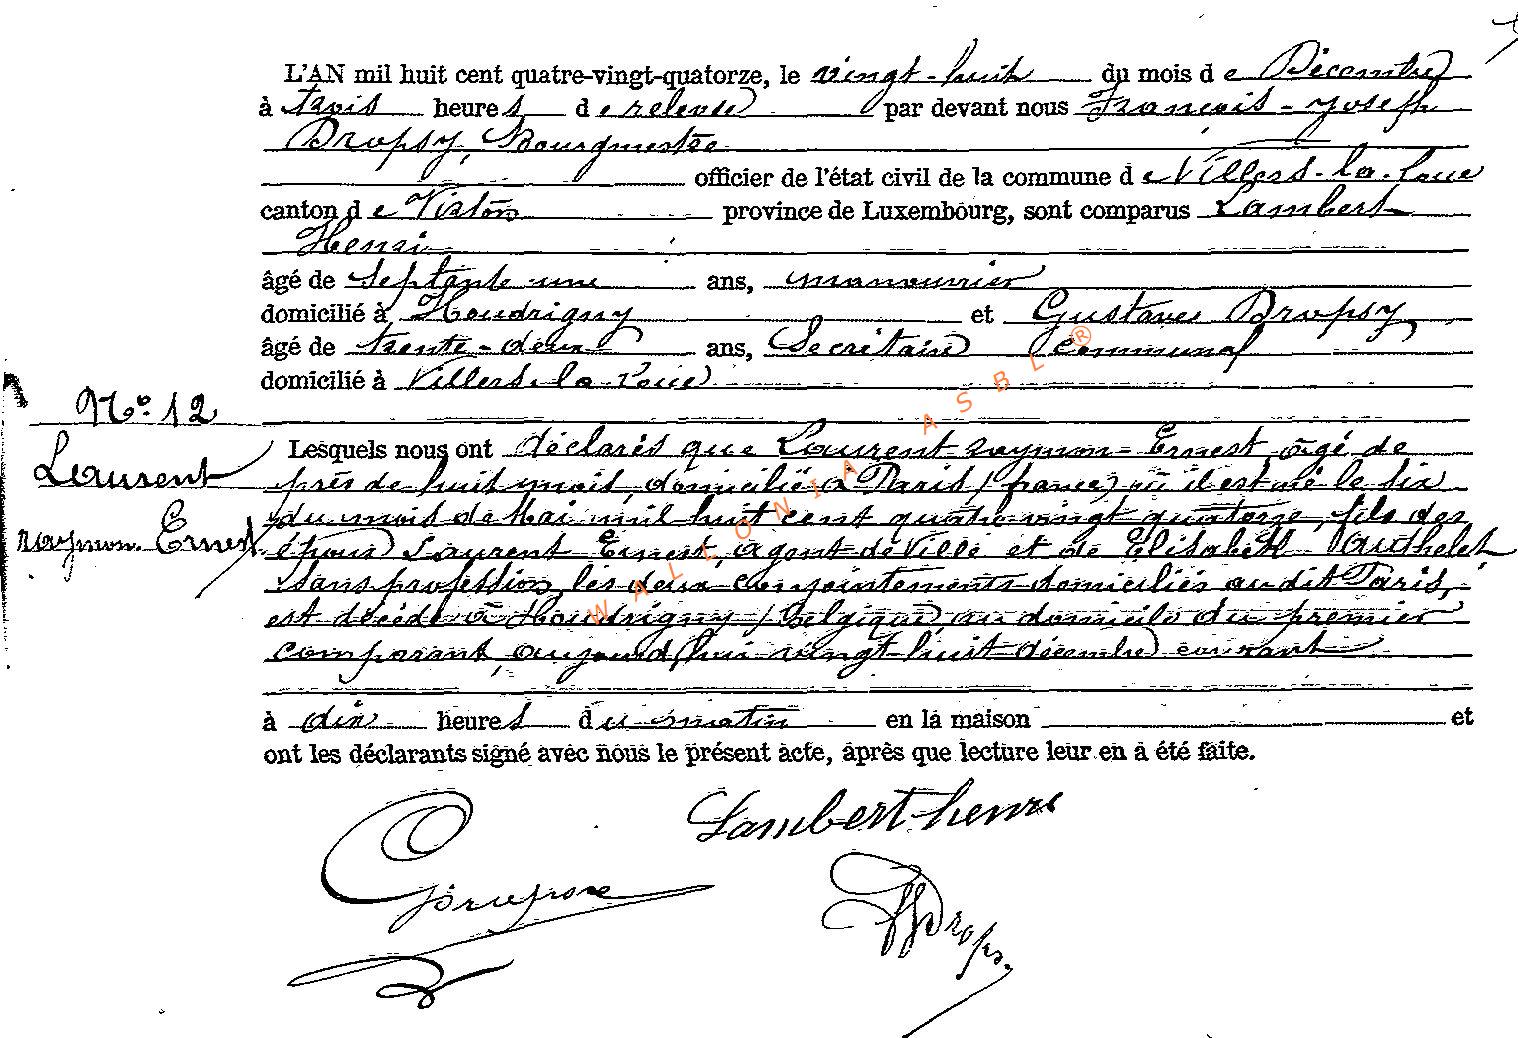 L'AN mil huit cent quatre-vingt-quatorze, le vingt-huit du mois de Décembre
à trois heures de relevée par devant nous François-Joseph
Dropsy, Bourgmestre
officier de l'état civil de la commune de Villers-la-Loue
canton de Virton province de Luxembourg, sont comparus Lambert
Henri
âgé de septante-une ans, manouvrier
domicilié à Houdrigny et Gustave Dropsy
âgé de trente-deux ans, Secrétaire communal
domicilié à Villers-la-Loue
No. 12
Laurent
raymon-Ernest
Lesquels nous ont déclaré que Laurent raymon-Ernest, âgé de
près de huit mois, domicilié à Paris (france) où il est né le six
du mois de Mai mil huit cent quatre vingt quatorze, fils des
époux Laurent Ernest, agent de Ville et de Elisabeth
sans profession, les deux conjointements domiciliés au dit Paris,
est décédé à Houdrigny (Belgique) au domicile du premier
comparant, aujourd'hui vingt-huit décembre courant
à dix heures du matin en la maison et
ont les déclarants signé avec nous le présent acte, après que lecture leur en a été faite.
Lambert henri
GDropsy
FJDropsy
WALLONIA ASBL ®